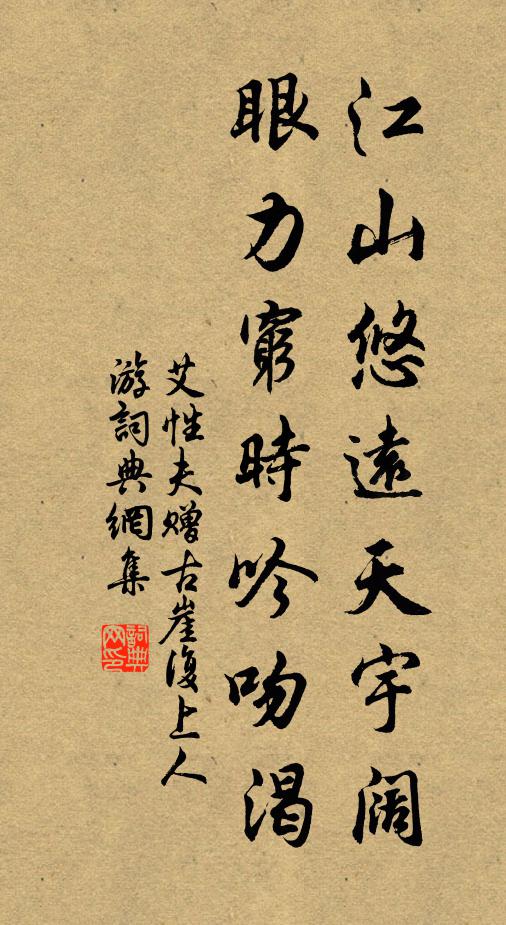 江山悠遠天宇闊
眼力窮時吟吻渴
艾性夫贈古崖復上人
游詞典網集
詞典网印